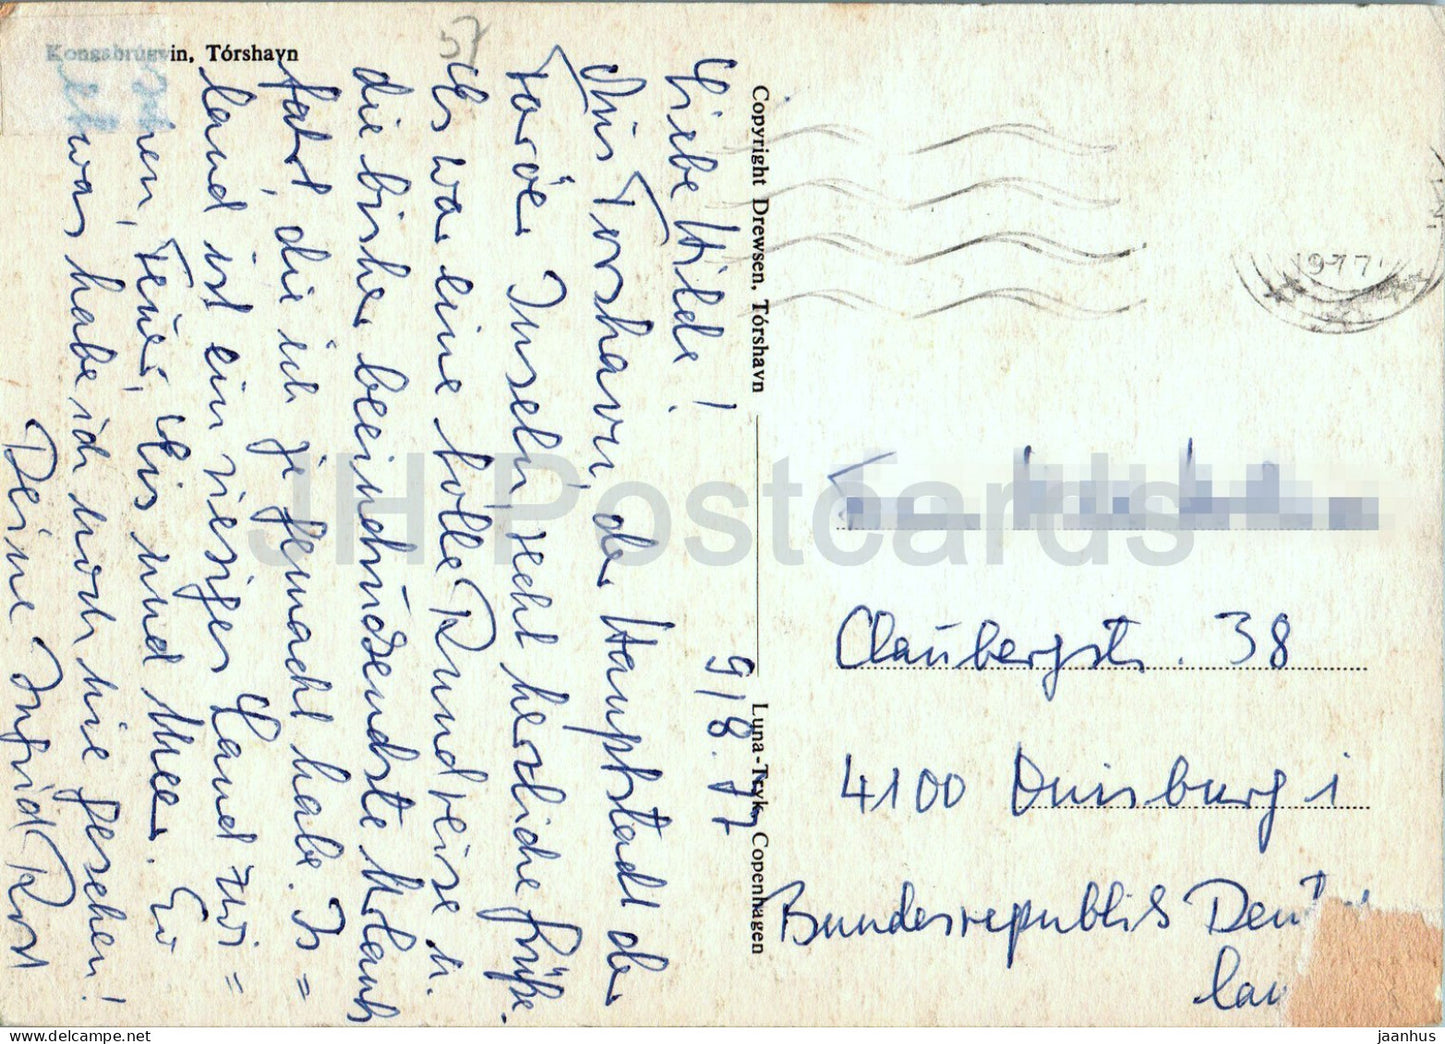 Kongsabrúgvin, Tórshavn
9/8. 77
Liebe Hilde!
Aus Torshavn, der Hauptstadt der
Faröer Inseln, recht herzliche Grüße.
Es war eine tolle Rundreise u.
die bisher beeindruckendste Urlaubs
fahrt, die ich je gemacht habe. Is=
land ist ein riesiges Land zwi=
schen, Feuer, Eis und Meer. So
etwas habe ich noch nie gesehen!
Deine Ingrid Rost
Copyright Drewsen, Tórshavn
Luna-Tryk, Copenhagen
1977
Claubergstr. 38
4100 Duisburg 1
Bundesrepublik Deut
lan
JH Postcards
jaanhus